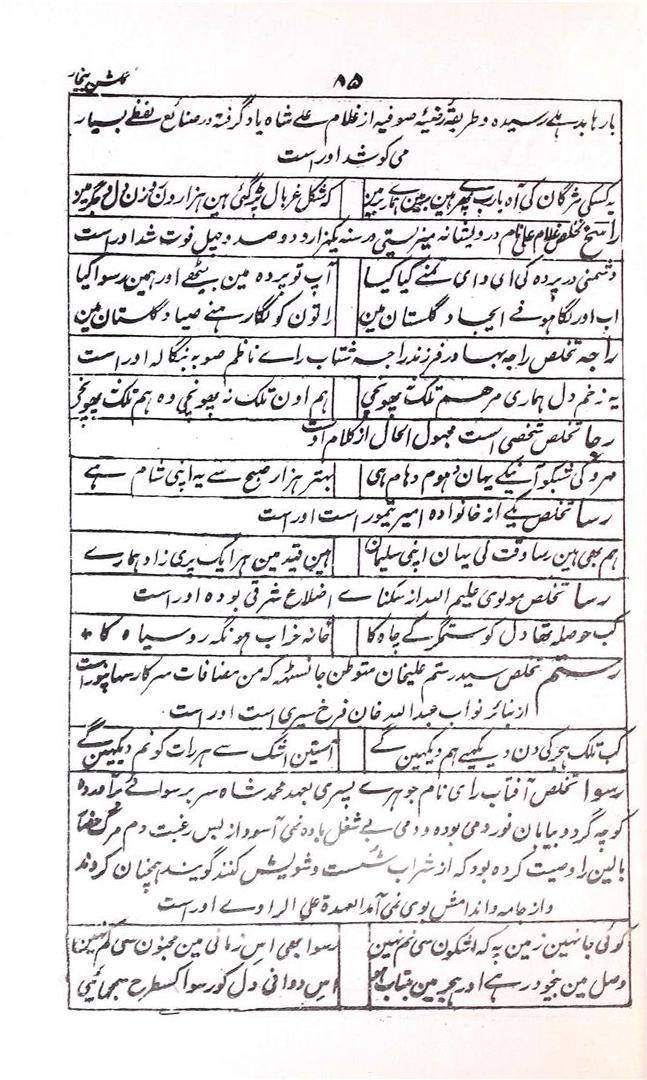 ۸۵
گلشن بیخار
بارها بدہلے رسیدہ و طریقۂ رضیۂ صوفیہ از غلام علے شاہ یاد گرفتہ در صنائع لفظے بسیار
می کوشد اوراست
یہ کسکی مژگان کی آہ یارب پھر ہین
کہ شکل غربال پڑ گئی ہین ہزار روزن دل و جگر مین
راسخ تخلص غلام علی نام درویشانہ میزیستی در سنہ یکہزار و دو صد و چہل فوت شد اوراست
دشمنی در پردہ کی ای وای تمنے کیا کیا
آپ تو پردہ مین بیٹھے اور ہمین رسوا کیا
اب اور لگا ہونے ایجاد گلستان مین
راتون کو لگا رہنے صیاد گلستان مین
راجہ تخلص راجہ بہادر فرزند راجہ شتاب راے ناظم صوبہ بنگالہ اوراست
یہ زخم دل ہماری مرہم تلک نہ پہونچی
ہم اون تلک نہ پہونچی وہ ہم تلک نہ پہونچی
رجا تخلص شخصی است مجہول الحال از کلام اوست
مہرو کی شبکو آنیکے یہان دہوم دہام ہی
بہتر ہزار صبح سے یہ اپنی شام ہے
رسا تخلص یکے از خانوادہ امیر تیمور است اوراست
ہم بھی ہین رسا وقت کی یہان اپنی سلیمان
ہین قید مین ہر ایک پری زاد ہمارے
رسا تخلص مولوی علیم اللہ از سکناے اضلاع شرقی بودہ اوراست
کب حوصلہ تھا دل کو ستمگر کے چاہ کا
خانہ خراب ہو نگہ روسیاہ کا
رستم تخلص سید رستم علیخان متوطن جانسٹہہ کہ من مضافات سرکار سہارنپور است
از نبائر نواب عبداللہ خان فرخ سیری است اوراست
کب تلک ہجر کی دن دیکھیے ہم دیکہین گے
آستین اشک سے ہر رات کو نم دیکہین گے
رسوا تخلص آفتاب رای نام جوہرے پسری بعہد محمد شاہ سر برسوائے برآوردہ
کوچہ گرد و بیابان نورد می بودہ و دمی بے شغل بادہ نمی آسود از بس رغبت دم مرگ حضار
بالین را وصیت کردہ بود کہ از شراب شست و شویش کنند گویند ہمچنان کردند
و از جامہ و اندامش بوی نمی آمد العہدۃ علی الراوے اوراست
کوئی جا نہین زمین پہ کہ اشکون سی نم نہین
رسوا بھی اس زمانی مین مجنون سی کم نہین
وصل مین بیخود رہے اور ہجر مین بیتاب ہو
اس دوانی دل کو رسوا کسطرح سمجہائیی